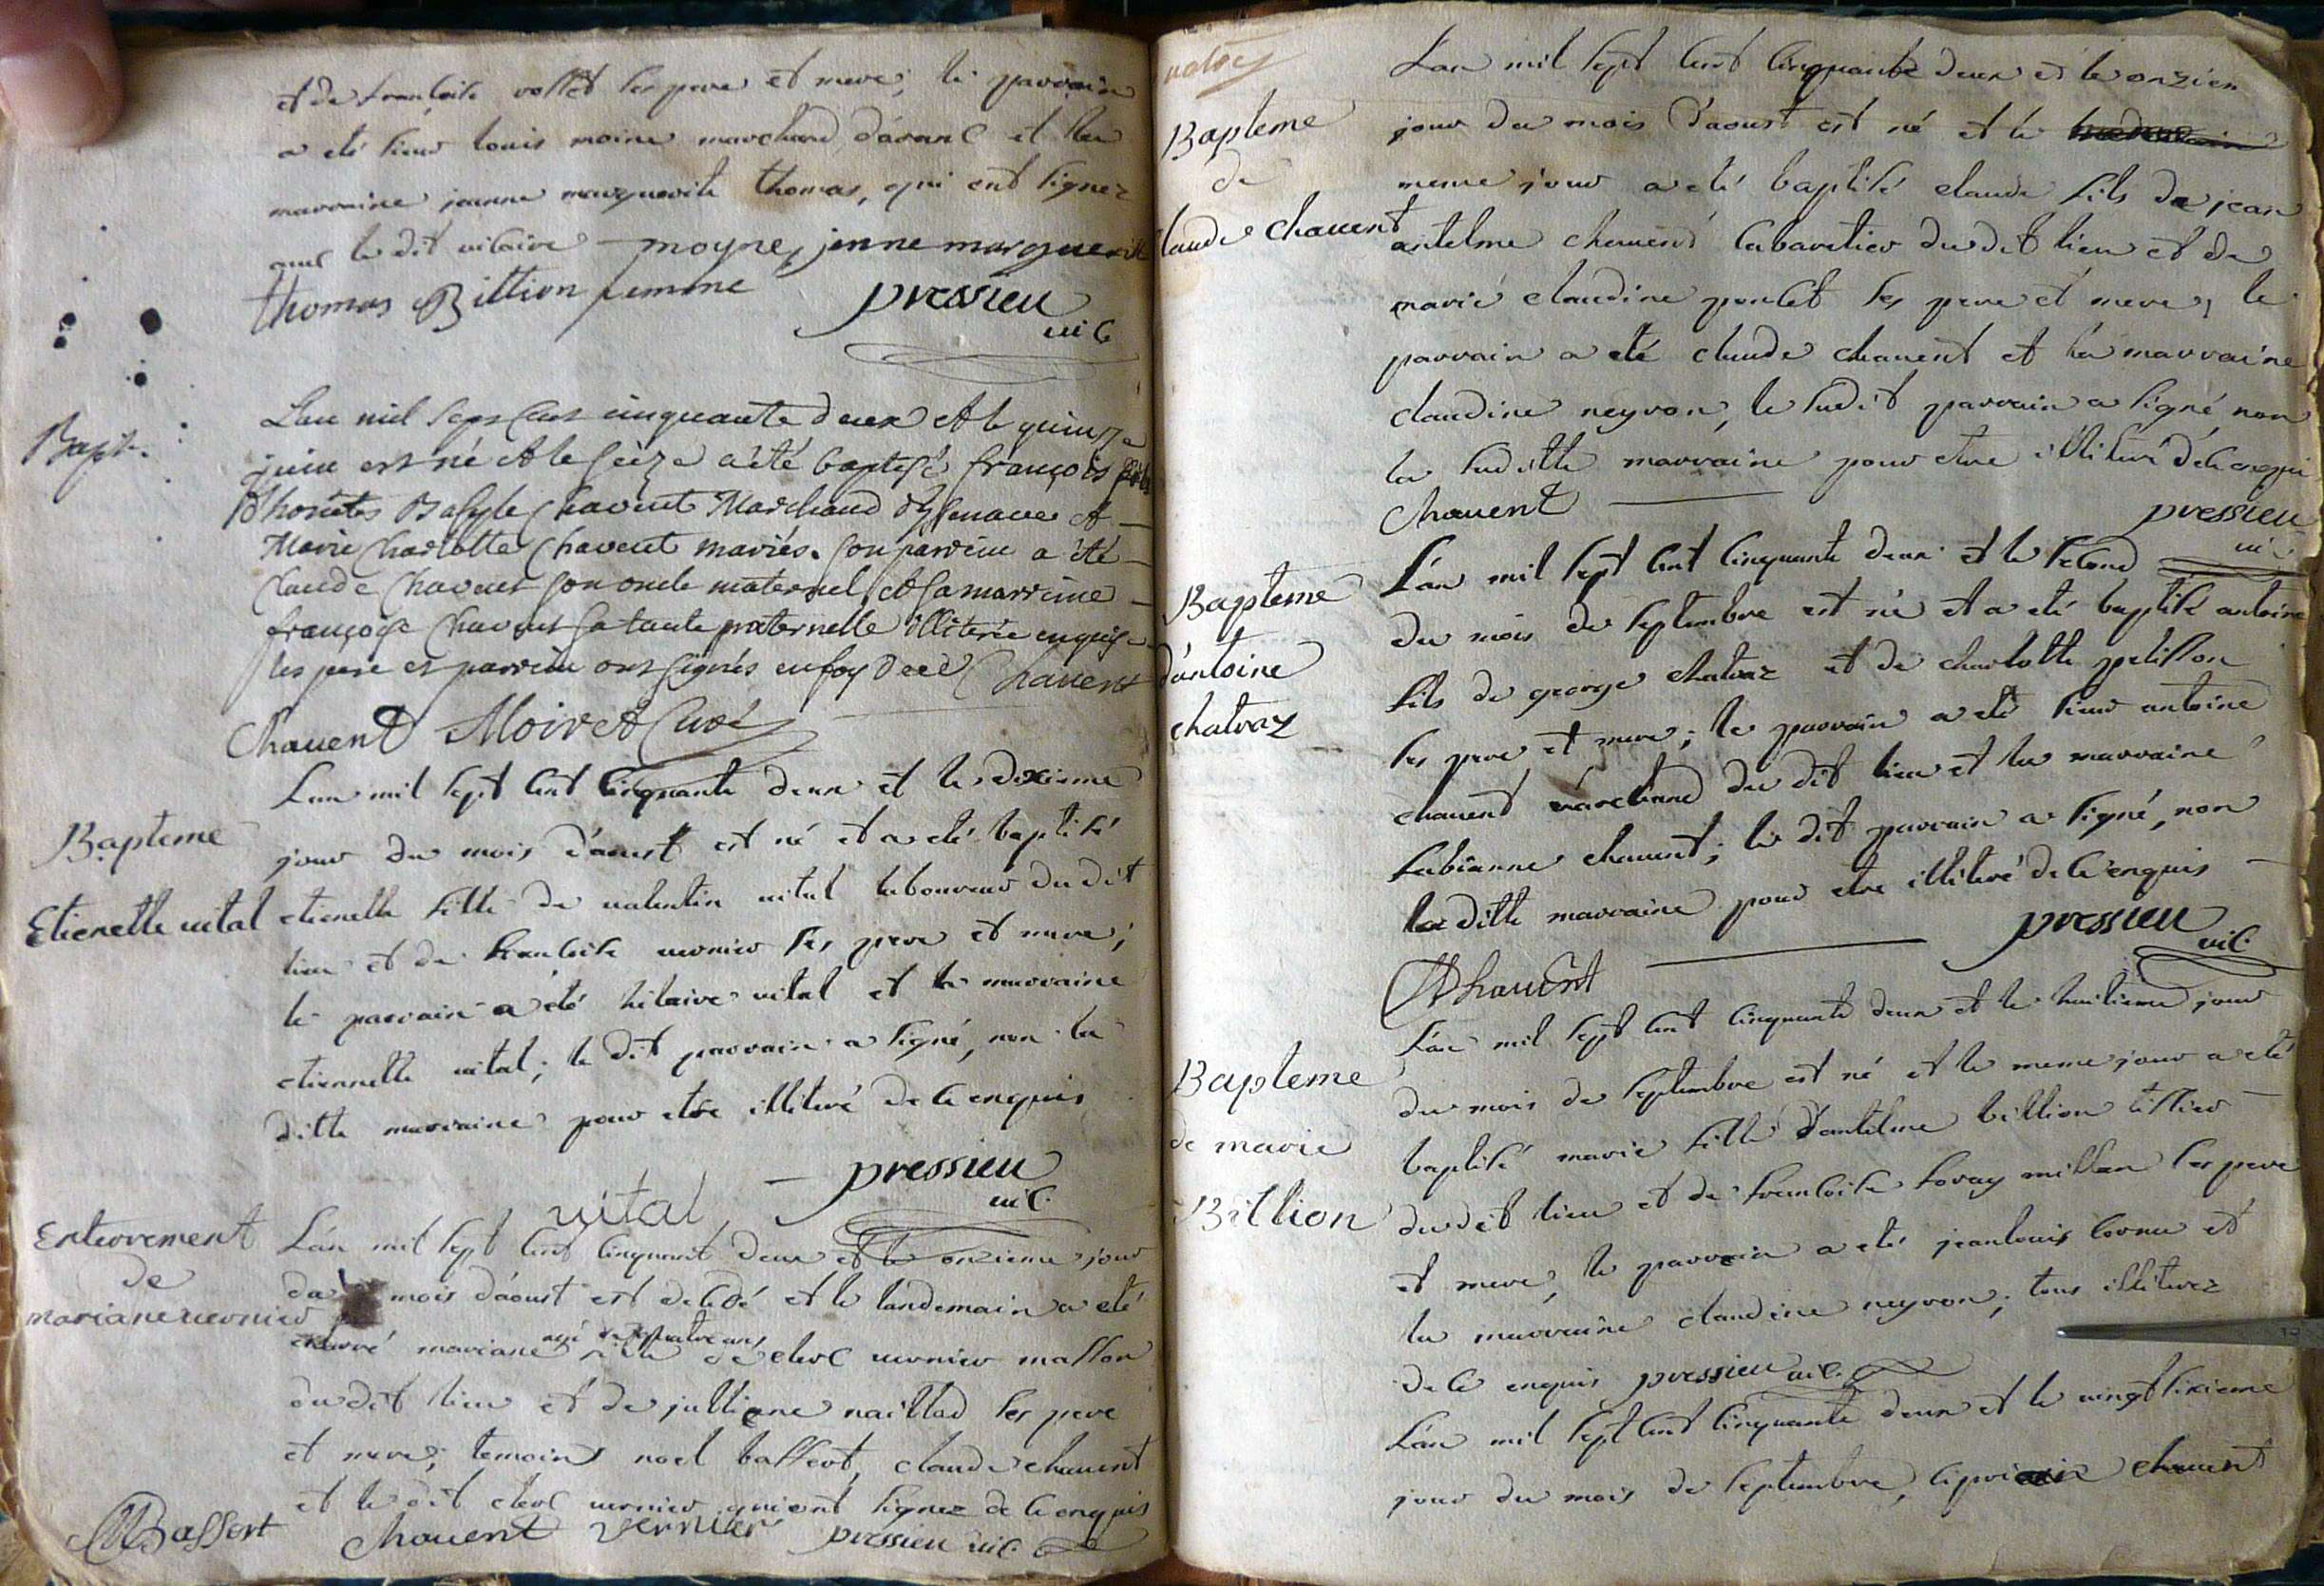 et de francoise vosset ses pere et mere; le parrain
a eté sieur louis moine marchand d'aranc et la
marraine jeanne marguerite thomas, qui ont signez
avec le dit vicaire moyne, jenne marguerite
thomas Billion femme pressieu
vic
Bapt.
L'an mil sept cent cinquante deux et le quinze
juin est né et le seize a été baptisé françois fils
d'honetes Basyle Chavent Marchand d'Isenave et
Marie Charlotte Chavent mariés. Son parrain a été
Claude Chavent son oncle maternel et sa marreine
françoise Chavent sa tante paternelle illiterée enquise
les pere et parrein ont signés en foy de ce Chavent
Chavent Moiret Curé
L'an mil sept cent cinquante deux et le dixieme
Bapteme
jour du mois d'aoust est né et a eté baptisé
Etienette vital
etienette fille de valentin vital laboureur du dit
lieu et de francoise vernier ses pere et mere;
le parrain a été hilaire vital et la marraine
etiennette vital; le dit parrain a signé, non la
ditte marraine pour etre illiteré de ce enquis
vital pressieu
vic.
Enterrement
de
mariane vernier
L'an mil sept cent cinquant deux et le onzieme jour
du mois d'aoust est decedé et le landemain a eté
enterré mariane agé de quatre ans fille de clerc vernier masson
du dit lieu et de julliane naillod ses pere
et mere; temoins noel bassert, claude chavent
et le dit clerc vernier qui ont signez de ce enquis
Bassert Chavent vernier pressieu vic.
L'an mil sept cent cinquante deux et le onzien
Bapteme
de
claude chavent
jour du mois d'aoust est né et le
meme jour a eté baptisé claude fils de jean
antelme chavent cabaretier du dit lieu et de
marie claudine poncet ses pere et mere, le
parrain a eté claude chavent et la marraine
claudine neyron, le sudit parrain a signé, non
la suditte marraine pour etre illiteré de ce enqui
Chavent pressieu
vic
Bapteme
d'antoine
chatraz
L'an mil sept cent cinquante deux et le second
du mois de septembre est né et a eté baptisé antoine
fils de george chatraz et de charlotte pelisson
ses pere et mere; le parrain a eté sieur antoine
chavent marchand du dit lieu et la marraine
fabianne chavent; le dit parrain a signé, non
la ditte marraine pour etre illiteré de ce enquis
Chavent pressieu
vic.
Bapteme
de marie
Billion
L'an mil sept cent cinquante deux et le huitieme jour
du mois de septembre est né et le meme jour a eté
baptisé marie fille d'antelme billion tissier
du dit lieu et de francoise foray millan ses pere
et mere, le parrain a eté jean louis cornu et
la marraine claudine neyron; tous illiterez
de ce enquis pressieu vic.
L'an mil sept cent cinquante deux et le vingt sixieme
jour du mois de septembre, chavent